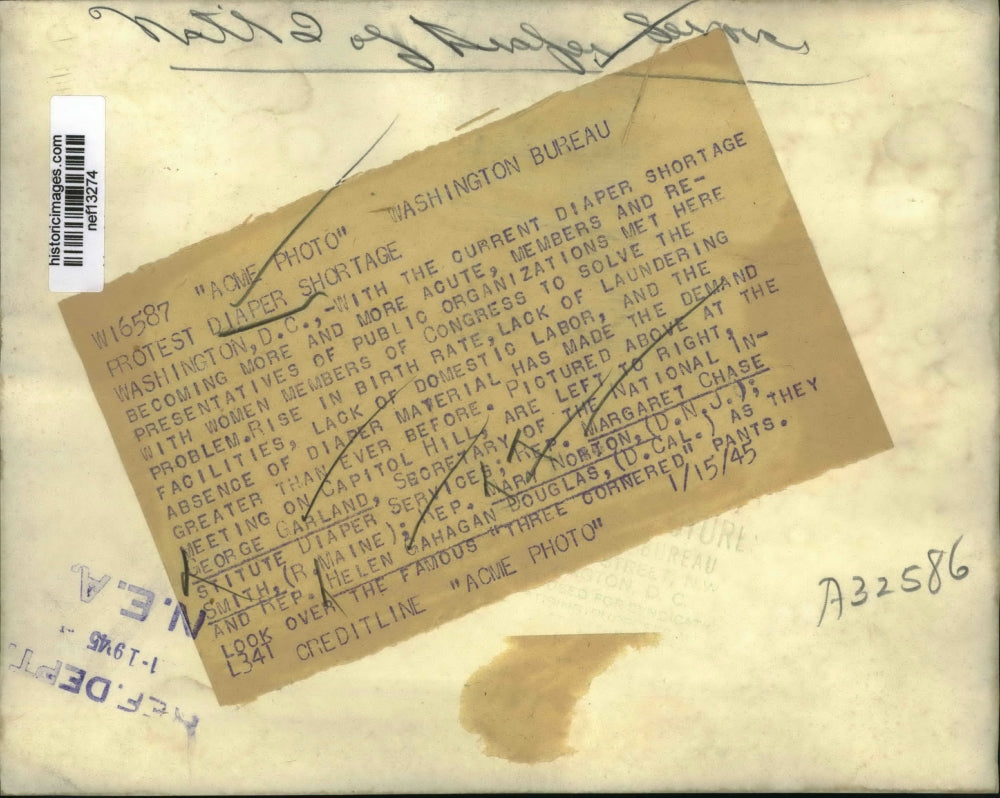 Nat'l I of Diaper Service
historicimages.com
nef13274
W16587 "ACME PHOTO" WASHINGTON BUREAU
PROTEST DIAPER SHORTAGE
WASHINGTON, D.C.,-WITH THE CURRENT DIAPER SHORTAGE
BECOMING MORE AND MORE ACUTE, MEMBERS AND RE-
PRESENTATIVES OF PUBLIC ORGANIZATIONS MET HERE
WITH WOMEN MEMBERS OF CONGRESS TO SOLVE THE
PROBLEM.RISE IN BIRTH RATE,LACK OF LAUNDERING
FACILITIES, LACK OF DOMESTIC LABOR, AND THE
ABSENCE OF DIAPER MATERIAL HAS MADE THE DEMAND
GREATER THAN EVER BEFORE. PICTURED ABOVE AT THE
MEETING ON CAPITOL HILL, ARE LEFT TO RIGHT,
GEORGE GARLAND, SECRETARY OF THE NATIONAL IN-
STITUTE DIAPER SERVICES; REP. MARGARET CHASE
SMITH, (R.MAINE); REP. MARY NORTON, (D.N.J.);
AND REP. HELEN GAHAGAN DOUGLAS, (D.CAL.) AS THEY
LOOK OVER THE FAMOUS "THREE CORNERED" PANTS.
L341 CREDITLINE "ACME PHOTO" 1/15/45
BUREAU
A32586
N.E.A.
1-1945
REF. DEPT.